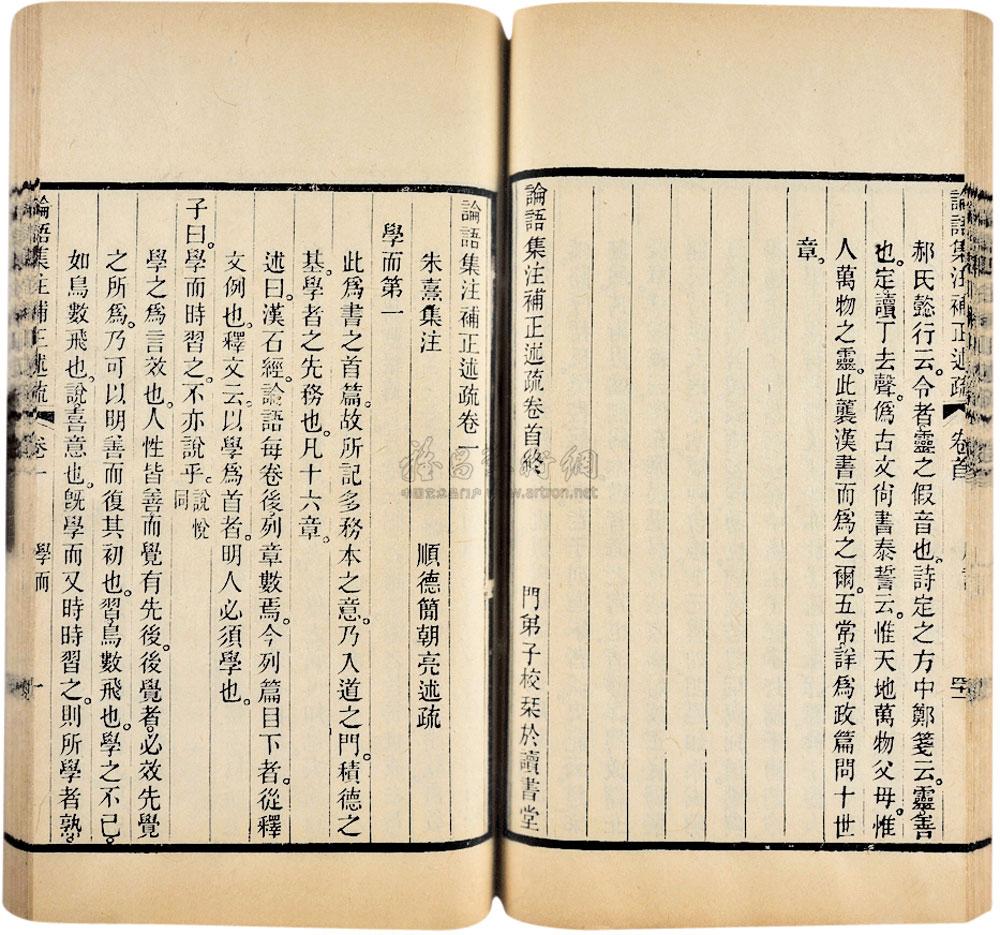 論語集注補正述疏 卷首
郝氏懿行云。令者靈之假音也。詩定之方中鄭箋云。靈善
也。定讀丁去聲。僞古文尙書泰誓云。惟天地萬物父母。惟
人萬物之靈。此襲漢書而爲之爾。五常詳爲政篇問十世
章。
論語集注補正述疏卷首終
門弟子校栞於讀書堂
論語集注補正述疏卷一
朱熹集注 順德簡朝亮述疏
學而第一
此爲書之首篇。故所記多務本之意。乃入道之門。積德之
基。學者之先務也。凡十六章。
述曰。漢石經論語每卷後。列章數焉。今列篇目下者。從釋
文例也。釋文云。以學爲首者。明人必須學也。
子曰。學而時習之。不亦說乎。說悅同
學之爲言效也。人性皆善而覺有先後。後覺者。必效先覺
之所爲。乃可以明善而復其初也。習。鳥數飛也。學之不已。
如鳥數飛也。說。喜意也。旣學而又時時習之。則所學者熟。
論語集注補正述疏 卷一 學而 一
www.artron.net